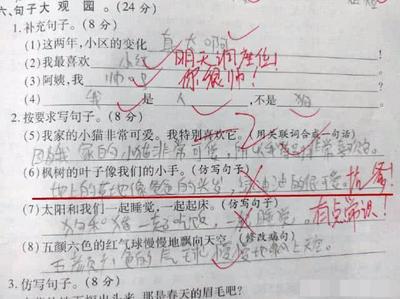 六、句子大观园。(24分)
1.补充句子。(8分)
(1)这两年,小区的变化真大啊
(2)我最喜欢小红 明天调座位!
(3)阿姨,我帅吧 你很帅!
(4)我是人,不是狗
2.按要求写句子。(8分)
(5)我家的小猫非常可爱。我特别喜欢它。(用关联词合成一句话)
因为我家的小猫非常可爱,所以我非常喜欢
(6)枫树的叶子像我们的小手。(仿写句子)
地上的草地像爸爸的头发,绿
(7)太阳和我们一起睡觉,一起起床。(仿写句子)
睡觉, 有点常识!
(8)五颜六色的红气球慢慢地飘向天空(修改病句)
五颜六色的气球慢慢地飘上天空。
3.仿写句子。(8分)
那是春天的眉毛吧?